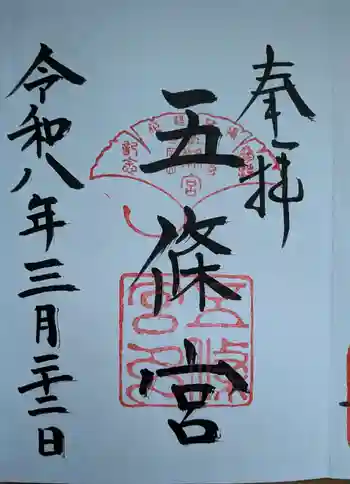 奉拝
五條宮
令和八年三月二十二日